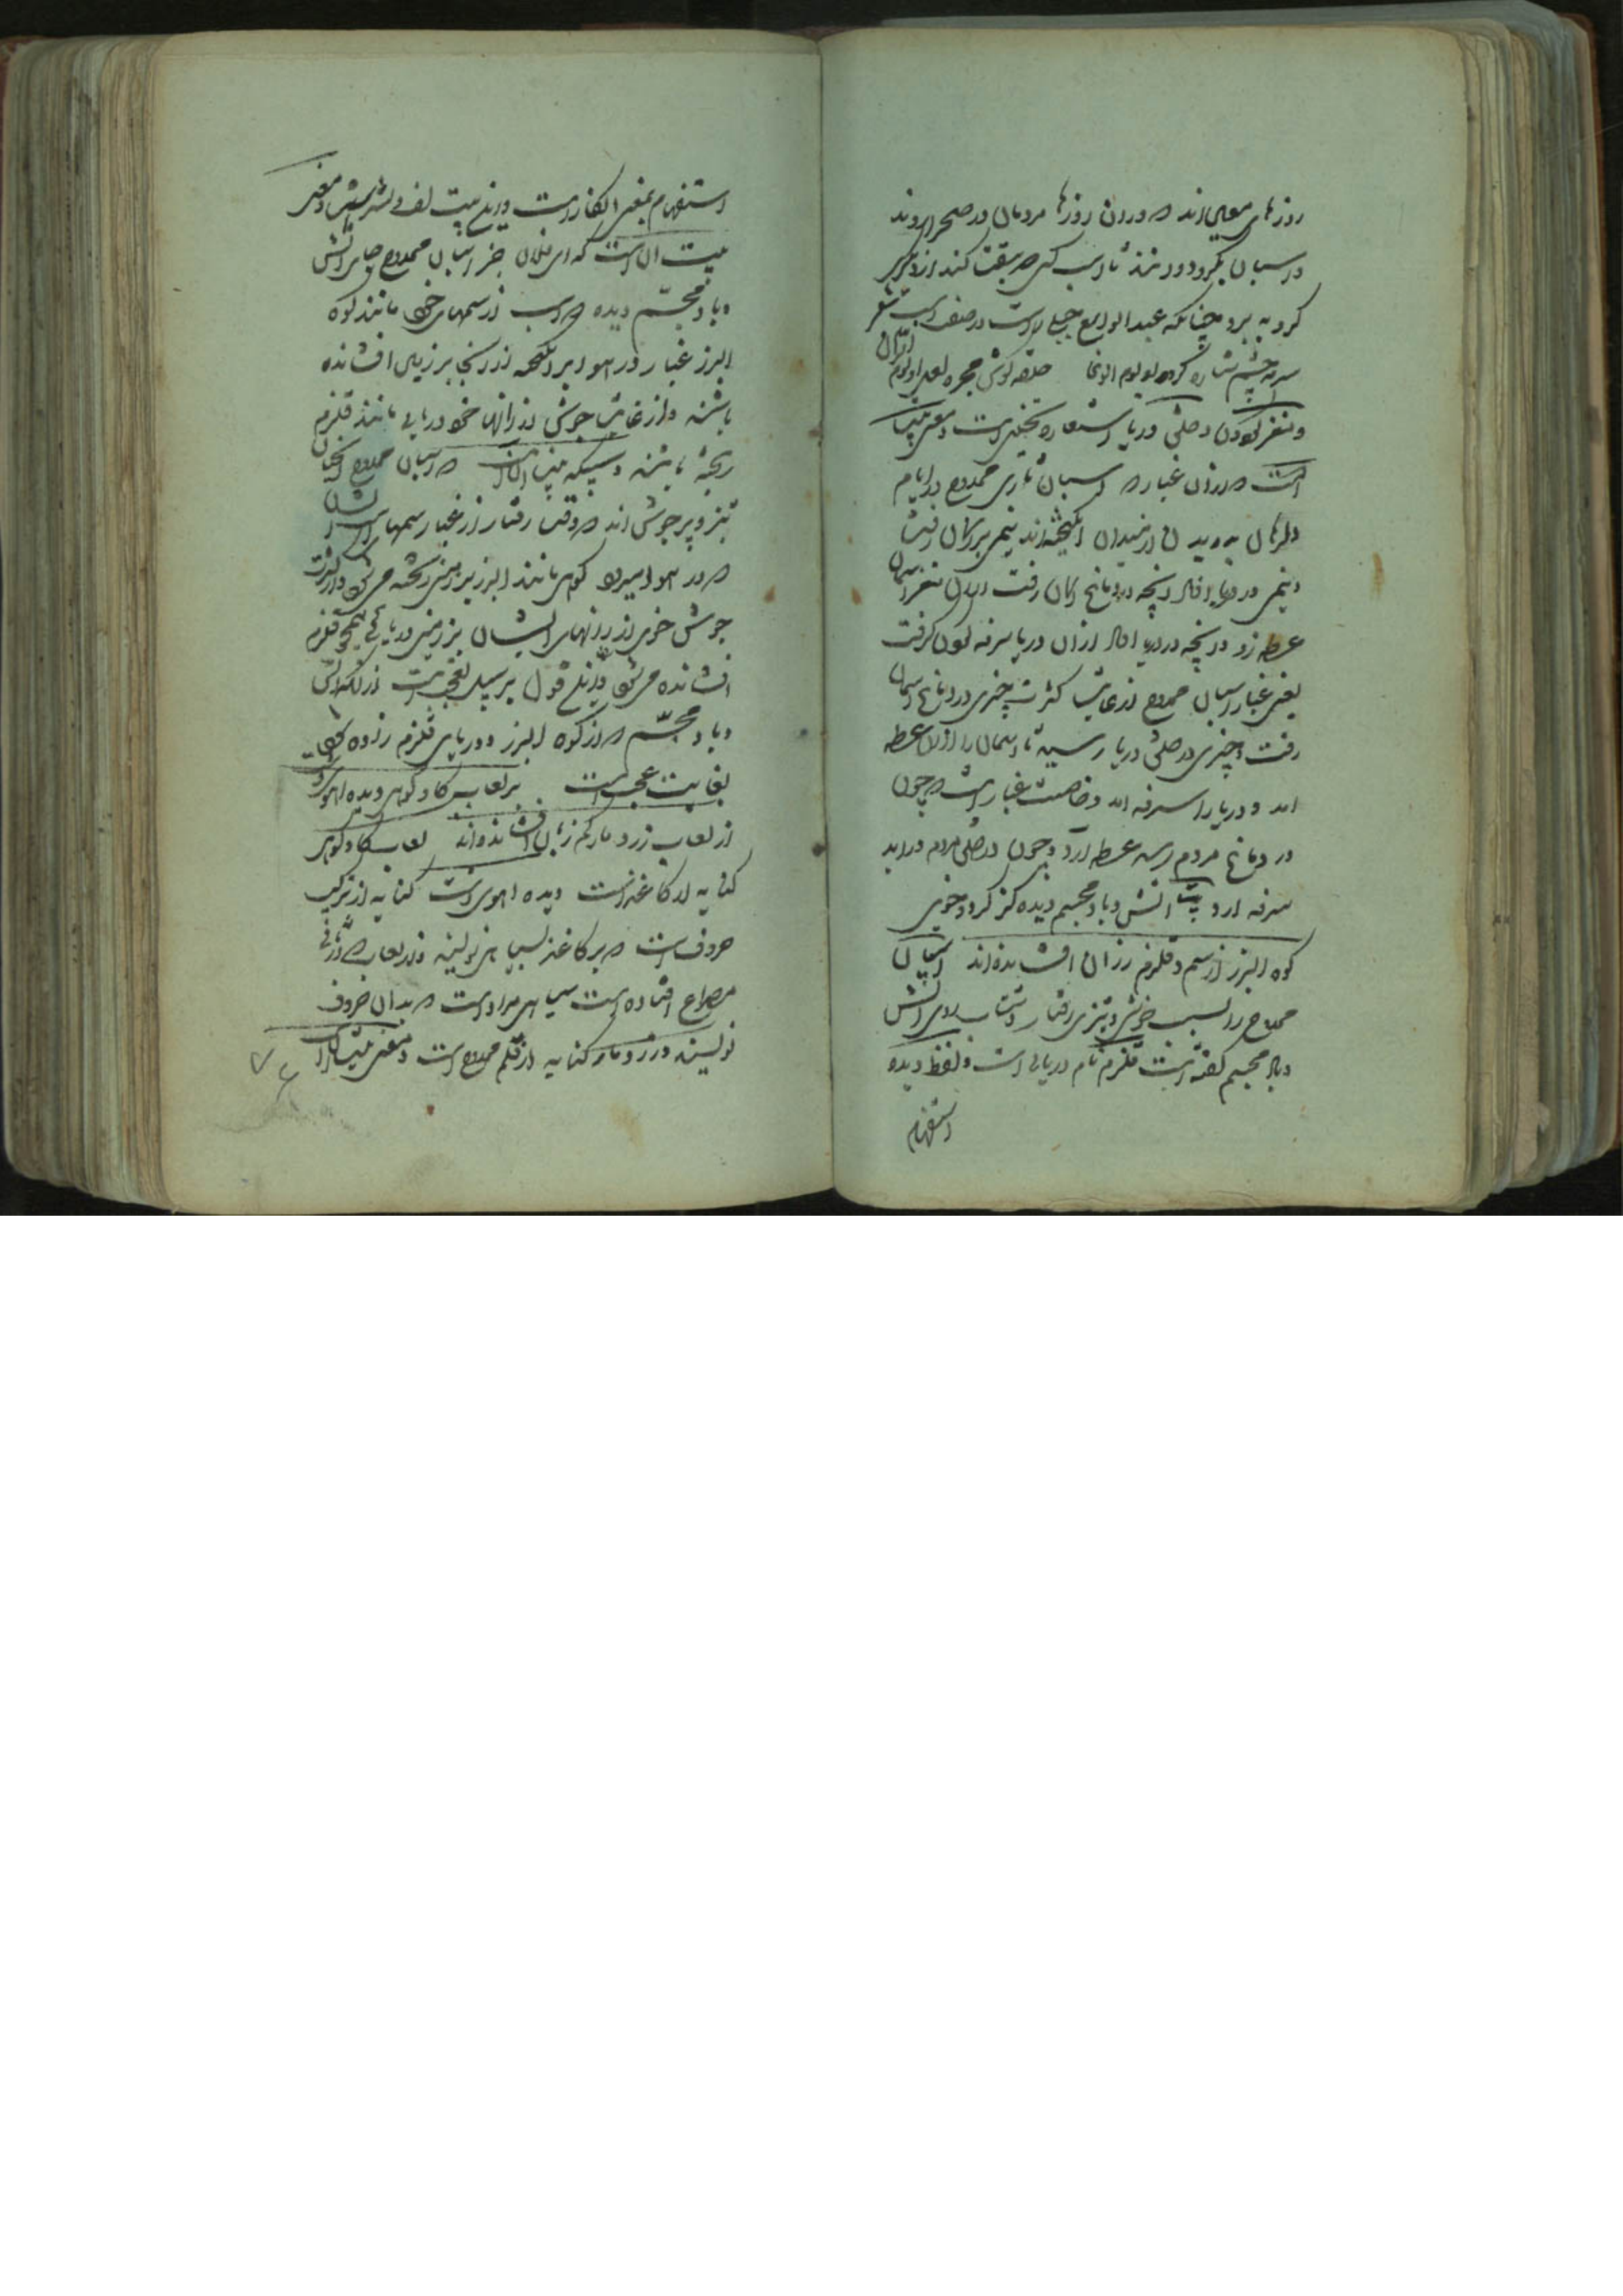 روزهای معین اند که در ان روزها مردمان در صحرا روند
و اسبان بگرو دوانند تا اسب کسی که سبقت کند از دیگری
گرو به برد چنانکه عبدالواسع جبلی راست در صفت اسب شعر
سرمه چشم ستاره کرده لو یوم الوغا حلقه گوش مجره
و مغز گردون و حلق دریا استعاره تخییلی است و معنی بیت
انست که دران غبار که اسبان تازی ممدوح در ایام
رهان به میدان از میدان انگیخته اند نیمی بر آسمان رفت
و نیمی در دریا افتاد انچه در دماغ آسمان رفت ازان مغز آسمان
عطسه زد و انچه در دریا افتاد ازان دریا سرفه کردن گرفت
یعنی غبار اسبان ممدوح از غایت کثرت چیزی در دماغ آسمان
رفت و چیزی در حلق دریا رسید تا آسمان را ازان عطسه
امد و دریا را سرفه امد و خاصیت غبار است که چون
در دماغ مردم رسد عطسه آرد و چون در حلق مردم در اید
سرفه ارد بیت اتش و باد مجسم دیده کز گرد و خوی
کوه البرز از سم و قلزم ز ران افشانده اند اسپان
ممدوح را بسبب جوش و تیزی رفتار و شتاب روی اتش
و باد مجسم گفته است قلزم نام دریایی است و لفظ دیده
استفهام
استفهام بمعنی انکار است و درین بیت لف و نشر است و معنی
بیت ان است که ای فلان جز اسپان ممدوح جایی اتش
و باد مجسم دیده که اسب از سمهای خود مانند کوه
البرز غبار در هوا بر انگیخته از انجا بر زمین افشانده
باشند و از غایت جوش از رانها خود دریایی مانند قلزم
ریخته باشند که اسبان ممدوح انچنان
تیز و پر جوش اند که وقت رفتار از غبار سمهای ایشان
که در هوا میرود کوهی مانند البرز بر زمین ریخته می شود و از کثرت
جوش خوی از رانهای ایشان بر زمین دریایی همچو قلزم
افشانده می شود و این قول بر سبیل تعجب است از انکه اتش
و باد مجسم که از کوه البرز و دریای قلزم زاده
بغایت عجب است بر لعاب گاو کوهی دیده اهوی
از لعاب زرد مار کم زبان افشانده اند لعاب گاو کوهی
کنایه از کاغذ است دیده اهوی دشت کنایه از ترکیب
حروف است که بر کاغذ بسیاهی نویسند و از لعاب که در ثانی
مصراع افتاده است سیاهی مراد است که بدان حروف
نویسند و زرد مار کنایه از قلم ممدوح است و معنی بیت آن